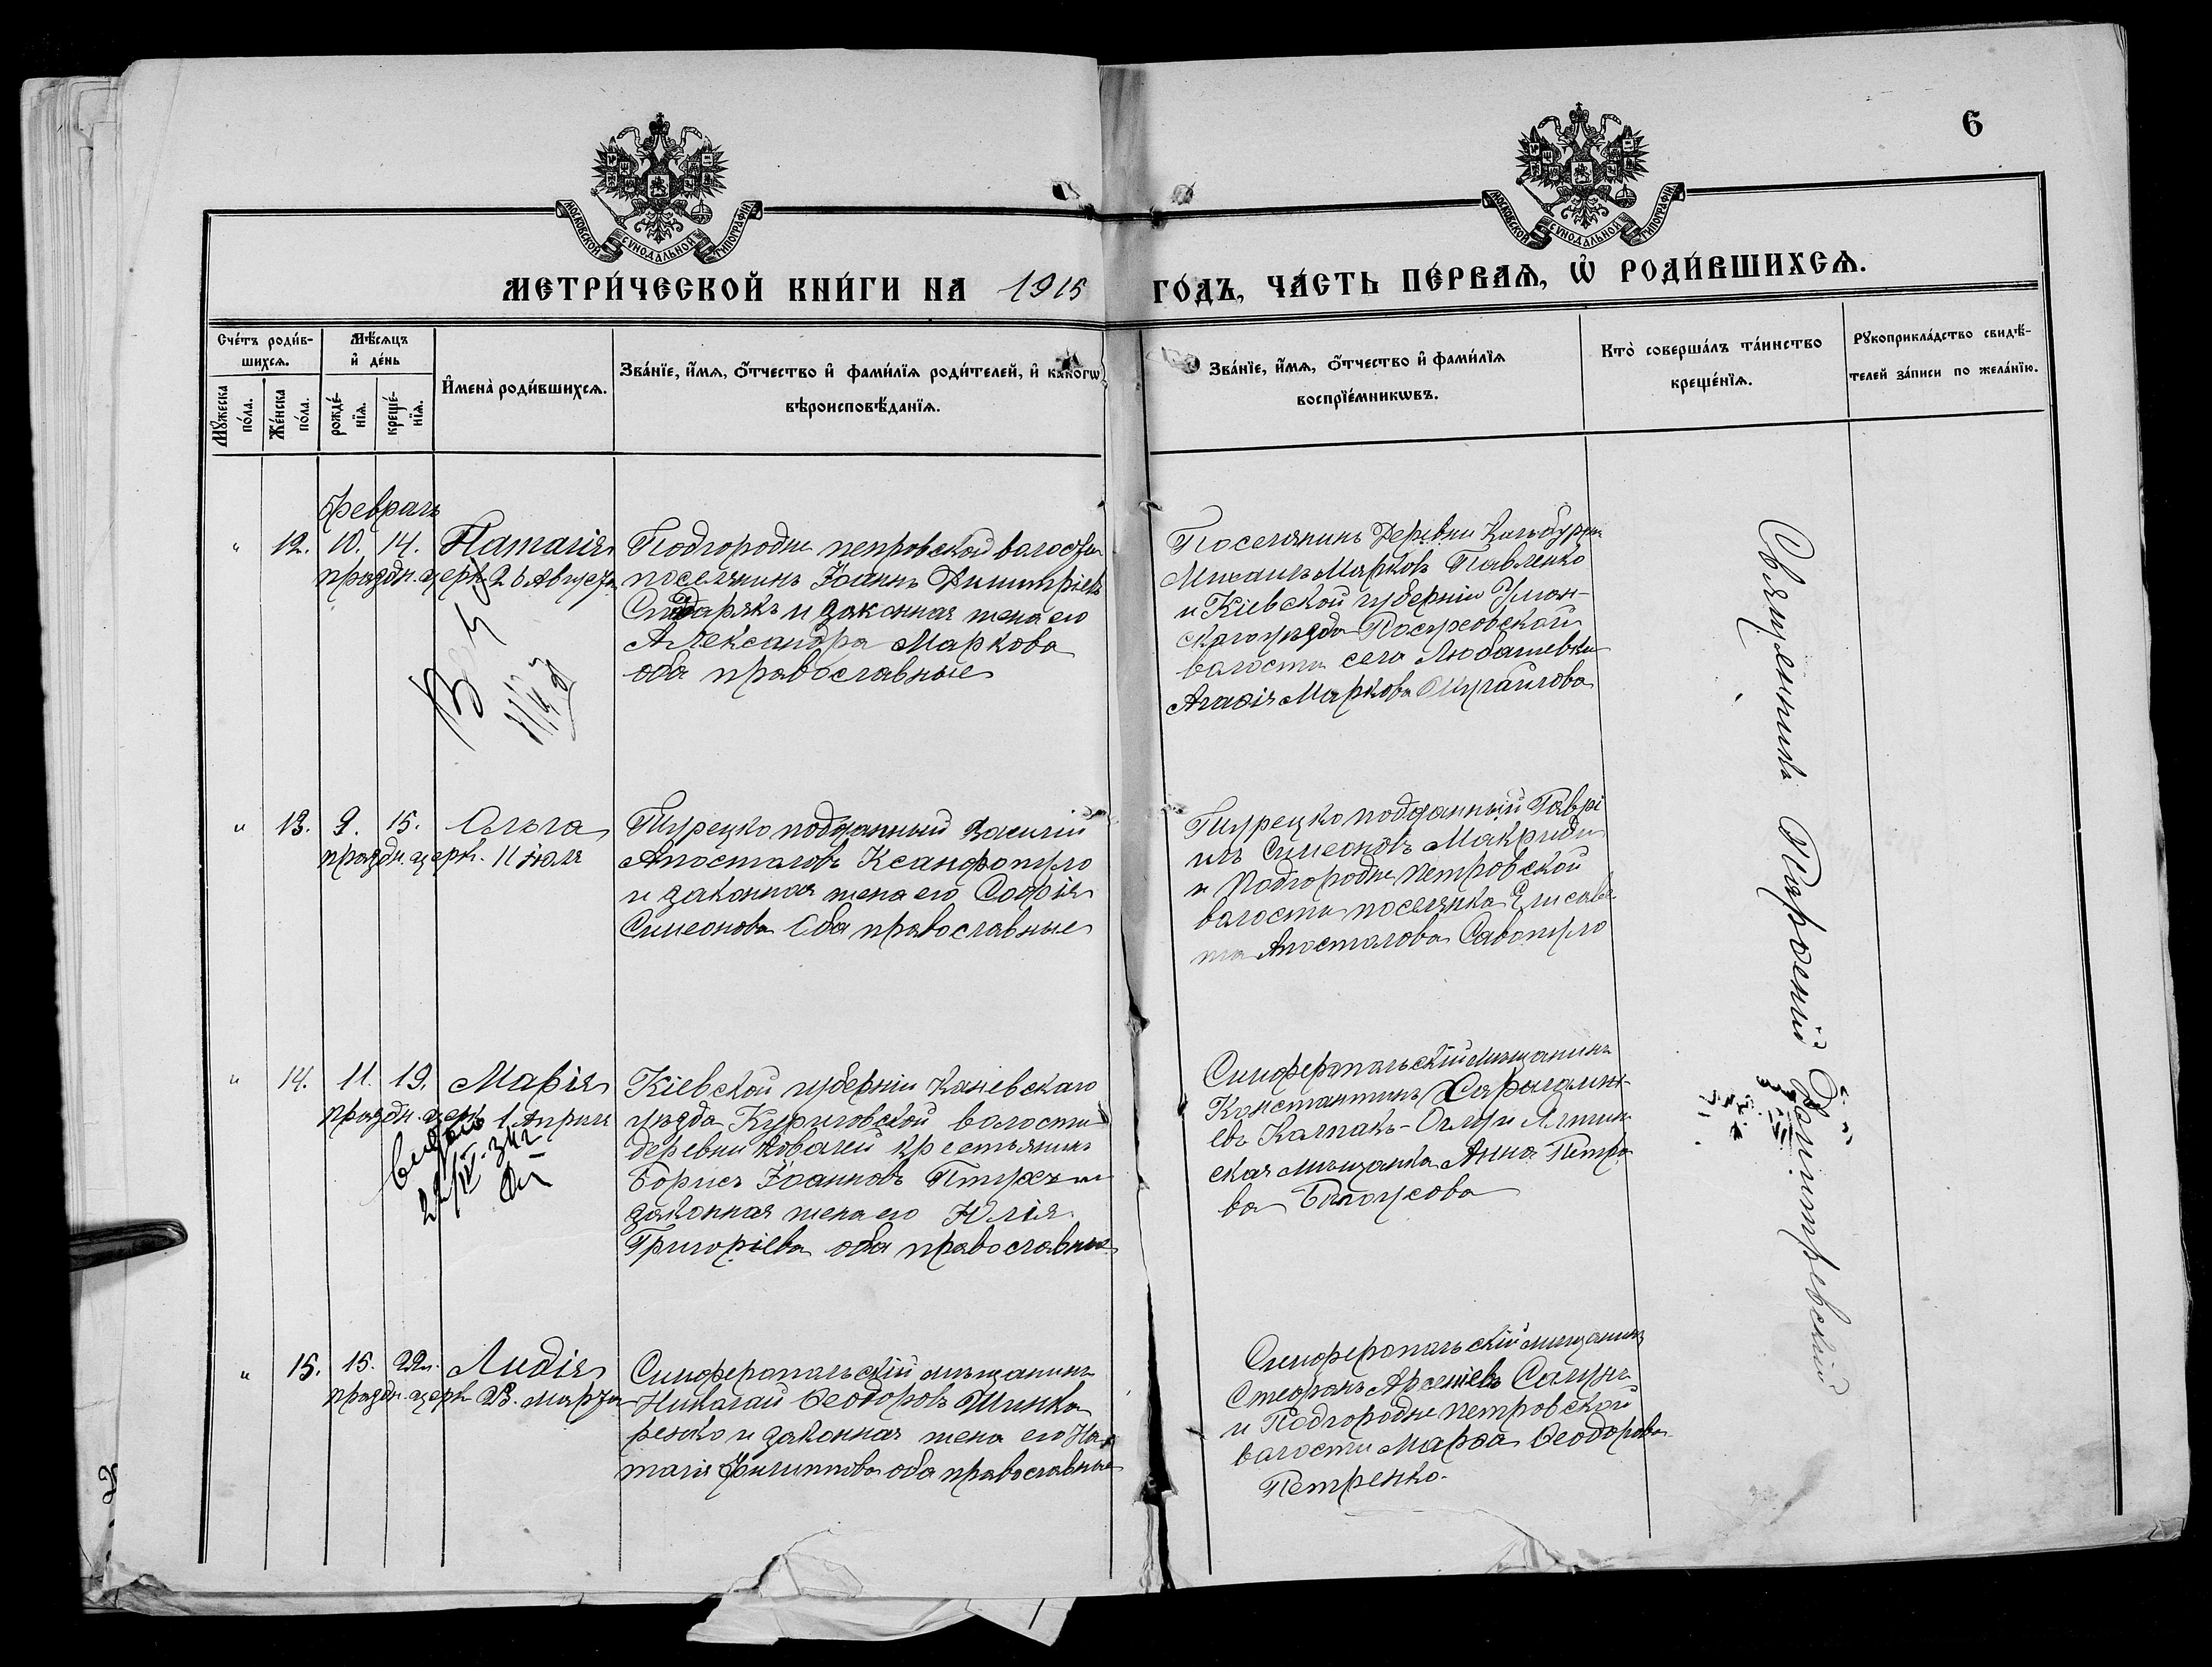 6
МОСКОВСКОЙ СѴНОДАЛЬНОЙ ТИПОГРАФІИ
МОСКОВСКОЙ СѴНОДАЛЬНОЙ ТИПОГРАФІИ
МЕТРИ́ЧЕСКОЙ КНИ́ГИ НА 1915 ГО́ДЪ, ЧА́СТЬ ПЕ́РВАѦ, Ѡ҆ РОДИ́ВШИХСѦ.
Сче́тъ роди́в-
шихсѧ.
Мꙋ́жеска
по́ла.
Же́нска
по́ла.
Мѣ́сѧцъ
и҆ де́нь
рожде́-
нїѧ.
креще́-
нїѧ.
И҆мена̀ роди́вшихсѧ.
Зва́нїе, и҆́мѧ, ѻ҆́тчество и҆ фами́лїѧ роди́телей, и҆ како́гѡ
вѣроисповѣ́данїѧ.
Зва́нїе, и҆́мѧ, ѻ҆́тчество и҆ фами́лїѧ
воспрїе́мникѡвъ.
Кто̀ соверша́лъ та́инство
креще́нїѧ.
Рꙋкоприкла́дство свидѣ́-
телей за́писи по жела́нїю.
Февраль
" 12. 10. 14. Наталія
праздн. церк. 26 Августа
Подгородне петровской волости
поселянинъ Іоаннъ Димитріевъ
и законная жена его
Александра Маркова
оба православные
Поселянинъ Деревни
Михаилъ Марковъ Павленко
и Кіевской губерніи Уман-
скаго уѣзда
волости села Любашевки
Агафія Маркова
" 13. 9. 15. Ольга
праздн. церк. 11 іюля
Турецко подданный Василій
Апостоловъ Ксанфопуло
и законная жена его Софія
Симеонова Оба православные
Турецко подданный Гаврі
илъ Симеоновъ Макриди
и Подгородне петровской
волости поселянка Елисаве
та Апостолова Савопуло
" 14. 11. 19. Марія
праздн. церк. 1 Апрѣля
22/IV
Кіевской губерніи Каневскаго
уѣзда волости
деревни Ковалей крестьянинъ
Борисъ Іоанновъ и
законная жена его Юлія
Григоріева оба православные
Симферопольскій мѣщанинъ
Константинъ
евъ и
ская мѣщанка Анна Петро
ва Бѣлоусова
" 15. 15. 22. Лидія
праздн. церк. 23. марта
Симферопольскій мѣщанинъ
Николай Ѳеодоровъ Шинка
ренко и законная жена его На
талія Филиппова оба православные
Симферопольскій мѣщанинъ
Стефанъ Арсеніевъ
и Подгородне петровской
волости Марѳа Ѳеодорова
Петренко.
Священникъ